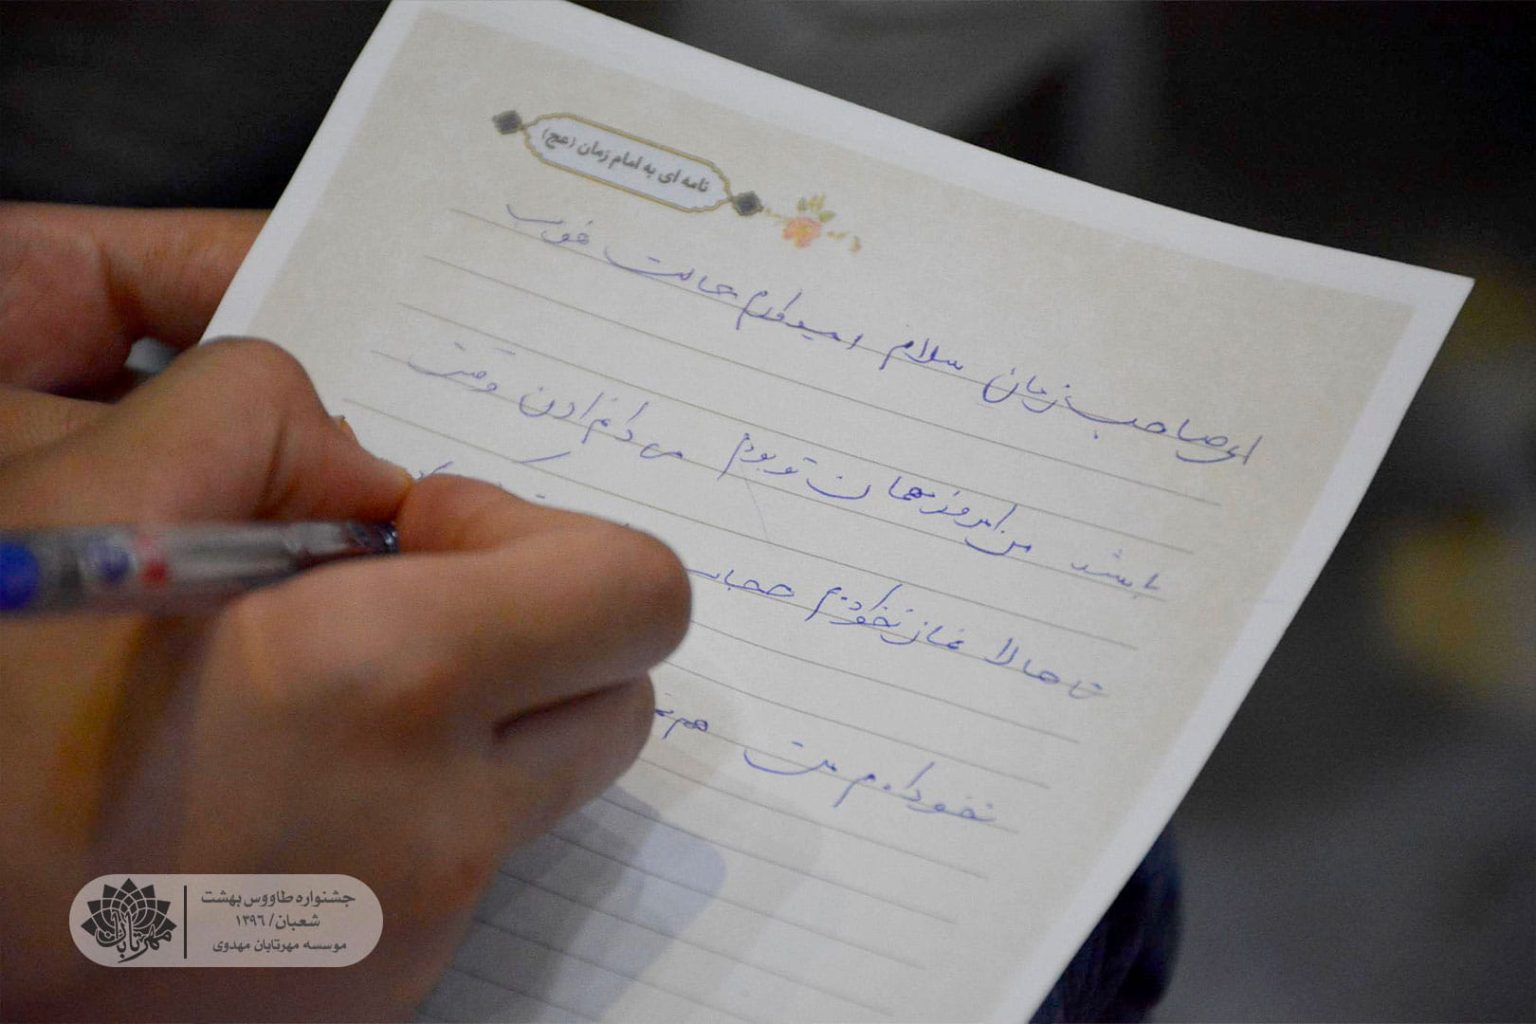 نامه ای به امام زمان (عج)
ای صاحب زمان سلام امیدوارم حالت خوب
باشد من امروز مهمان تو بودم می دانم ادن وقت
تا حالا نماز نخواندم حجاب
نخواندم
جشنواره طاووس بهشت
شعبان/ ۱۳۹۶
موسسه مهرتابان مهدوی
مهرتابان